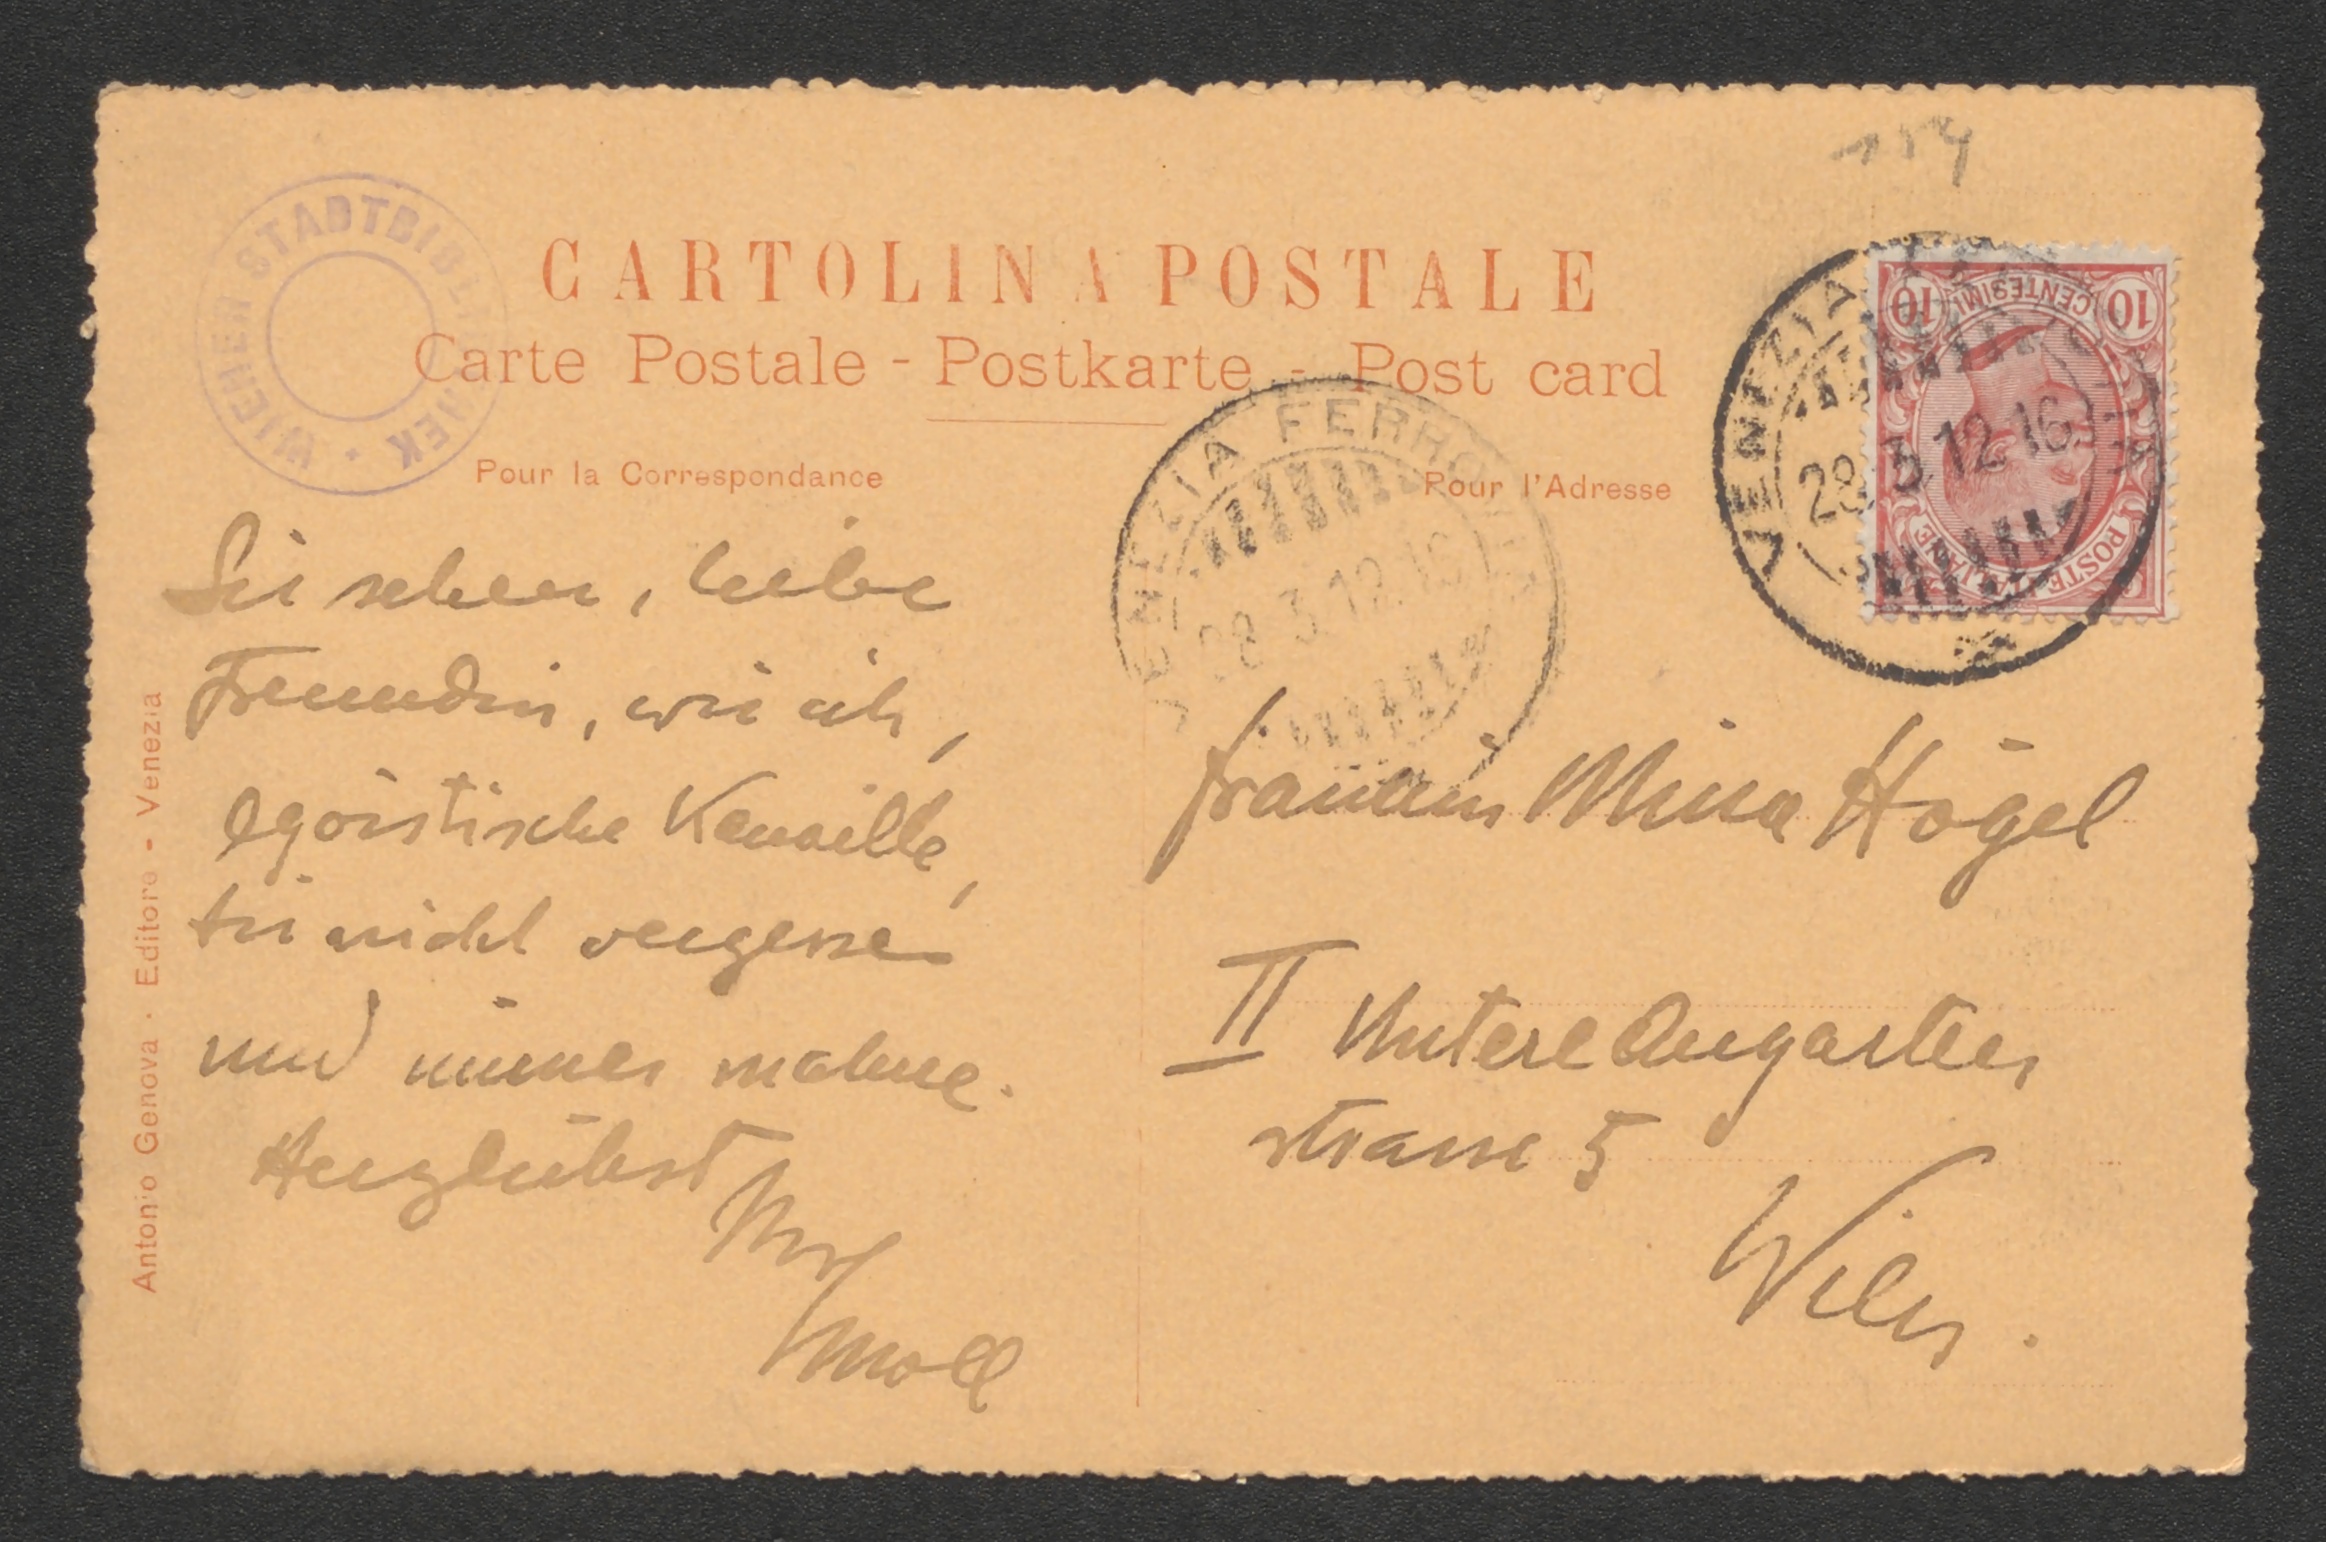 154
WIENER STADTBIBLIOTHEK
CARTOLINA POSTALE
Carte Postale - Postkarte - Post card
Pour la Correspondance
Pour l'Adresse
VENEZIA FERROVIA
28 3 12 16
VENEZIA
28 3 12 16
10 CENTESIMI 10
POSTE ITALIANE
Sie sehen, liebe
Freundin, wie ich,
egoistische Kanaille,
Sie nicht vergesse
und immer mahne.
Herzlichst
Ihr
Moll
Fräulein Mina Högel
II Untere Augarten
strasse 5
Wien.
Antonio Genova - Editore - Venezia